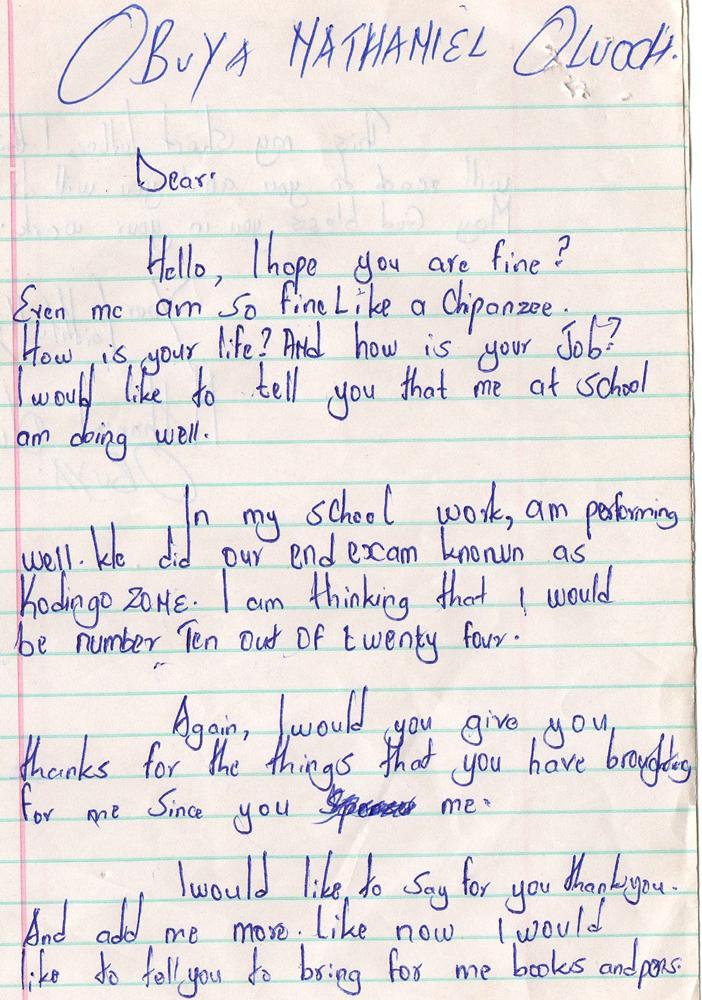 OBUYA NATHANIEL OLUOCH.
Dear:
Hello, I hope you are fine?
Even me am so fine Like a Chipanzee.
How is your life? And how is your Job?
I would like to tell you that me at school
am doing well.
In my school work, am performing
well. We did our end exam knonun as
Kodingo ZONE. I am thinking that I would
be number Ten out OF twenty four.
Again, I would you give you,
thanks for the things that you have broughting
for me Since you me.
I would like to say for you thankyou.
And add me more. Like now I would
like to tell you to bring for me books and pens.